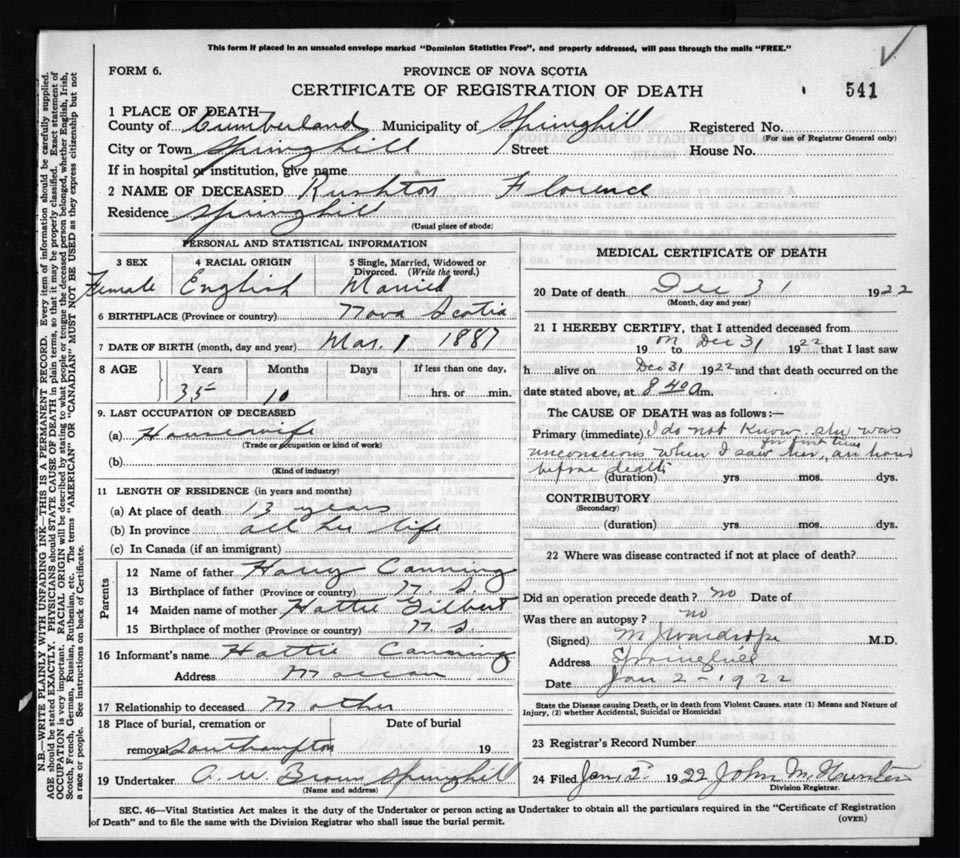 This form if placed in an unsealed envelope marked "Dominion Statistics Free", and properly addressed, will pass through the mails "FREE."
FORM 6.
PROVINCE OF NOVA SCOTIA
CERTIFICATE OF REGISTRATION OF DEATH
541
1 PLACE OF DEATH—
County of Cumberland Municipality of Springhill Registered No.
(For use of Registrar General only)
City or Town Springhill Street House No.
If in hospital or institution, give name
2 NAME OF DECEASED Rushton Florence
Residence Springhill
(Usual place of abode)
PERSONAL AND STATISTICAL INFORMATION
3 SEX 4 RACIAL ORIGIN 5 Single, Married, Widowed or Divorced. (Write the word.)
Female English Married
6 BIRTHPLACE (Province or country) Nova Scotia
7 DATE OF BIRTH (month, day and year) Mar. 1 1887
8 AGE Years Months Days If less than one day,
35 10 hrs. or min.
9. LAST OCCUPATION OF DECEASED
(a) Housewife
(Trade or occupation or kind of work)
(b)
(Kind of industry)
11 LENGTH OF RESIDENCE (in years and months)
(a) At place of death 13 years
(b) In province all her life
(c) In Canada (if an immigrant)
Parents
12 Name of father Harry Canning
13 Birthplace of father (Province or country) N.S.
14 Maiden name of mother Hattie Gilbert
15 Birthplace of mother (Province or country) N S
16 Informant's name Hattie Canning
Address Maccan
17 Relationship to deceased Mother
18 Place of burial, cremation or Date of burial
removal Southampton 19
19 Undertaker A. W. Brown Springhill
(Name and address)
MEDICAL CERTIFICATE OF DEATH
20 Date of death Dec 31 1922
(Month, day and year)
21 I HEREBY CERTIFY, that I attended deceased from
19 to Dec 31 1922 that I last saw
h alive on Dec 31 1922 and that death occurred on the
date stated above, at 8 40 a m.
The CAUSE OF DEATH was as follows:—
Primary (immediate) I do not know. she was
unconscious when I saw her, for first time an hour
before death
(duration) yrs mos. dys.
CONTRIBUTORY
(Secondary)
(duration) yrs mos. dys.
22 Where was disease contracted if not at place of death?
Did an operation precede death? no Date of
Was there an autopsy? no
(Signed) M J Wardrope M.D.
Address Springhill
Date Jan 2 - 1922
State the Disease causing Death, or in death from Violent Causes, state (1) Means and Nature of Injury, (2) whether Accidental, Suicidal or Homicidal
23 Registrar's Record Number
24 Filed Jan, 2 1922 John M. Hunter
Division Registrar.
SEC. 46—Vital Statistics Act makes it the duty of the Undertaker or person acting as Undertaker to obtain all the particulars required in the "Certificate of Registration
of Death" and to file the same with the Division Registrar who shall issue the burial permit.
(OVER)
N.B.—WRITE PLAINLY WITH UNFADING INK—THIS IS A PERMANENT RECORD. Every item of information should be carefully supplied.
AGE should be stated EXACTLY. PHYSICIANS should STATE CAUSE OF DEATH in plain terms, so that it may be properly classified. Exact statement of
OCCUPATION is very important. RACIAL ORIGIN will be described by stating to what people or tongue the deceased person belonged, whether English, Irish,
Scotch, French, German, Russian, Ruthenian, etc. The terms "AMERICAN" OR "CANADIAN" MUST NOT BE USED as they express citizenship but not
a race or people. See instructions on back of Certificate.